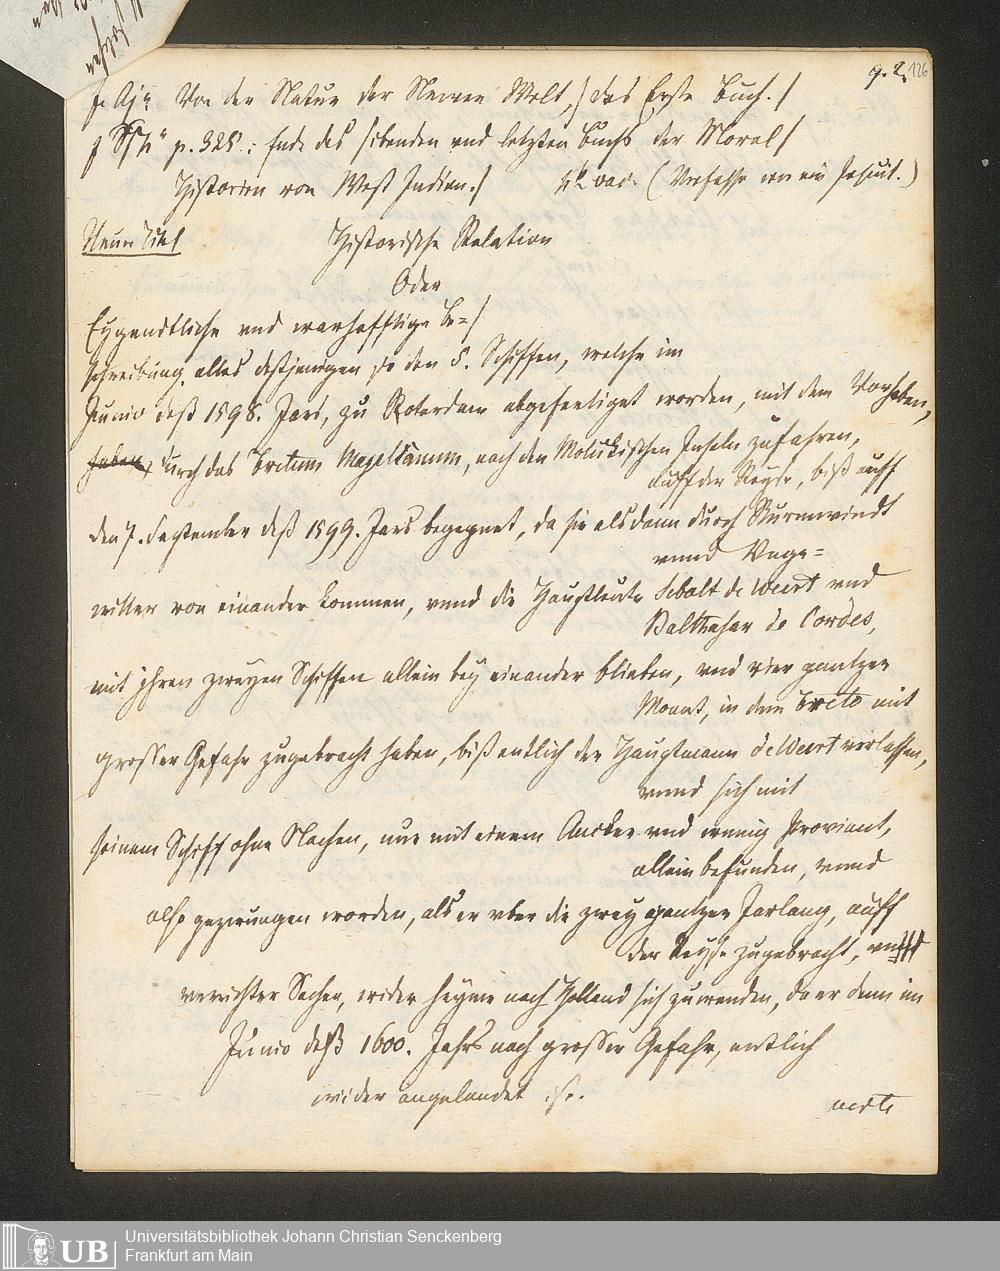 q. 2. 126
f. Aj a Von der Natur der Newen Welt,/ das Erste Buch./
p. 325.: Ende des sibenden vnd letzten Buchs der Moral/
Historien von West Indien./ (Verfasser ein Jesuit.)
Neuer Titel Historische Relation
Oder
Eygendtliche vnd warhafftige Be=/
schreibung alles desjenigen so den 5. Schiffen, welche im
Junio deß 1598. Jars, zu Roterdam abgefertiget worden, mit dem Vorhaben,
durch das Fretum Magellanum, nach den Molukischen Inseln zufahren,
auff der Reyse, biß auff
den 7. September deß 1599. Jars begegnet, da sie alsdann durch Sturmwindt
vnnd Unge=
witter von einander kommen, vnnd die Hauptleute Sebalt de Weert vnd
Balthasar de Cordes,
mit jhren zweyen Schiffen allein bey einander blieben, vnd vier gantzer
Monat, in dem Freto mit
grosser Gefahr zugebracht haben, biß entlich der Hauptmann de Weert verlassen,
vnnd sich mit
seinem Schiff ohne Nachen, nur mit einem Ancker vnd wenig Proviant,
allein befunden, vnnd
also gezwungen worden, als er vber die zwey gantzer Jarlang, auff
der Reyse zugebracht,
verrichter Sachen, wider heym nach Holland sich zuwenden, da er dann im
Junio deß 1600. Jahrs nach grosser Gefahr, entlich
wider angelandet ist.
verte
Universitätsbibliothek Johann Christian Senckenberg
UB Frankfurt am Main